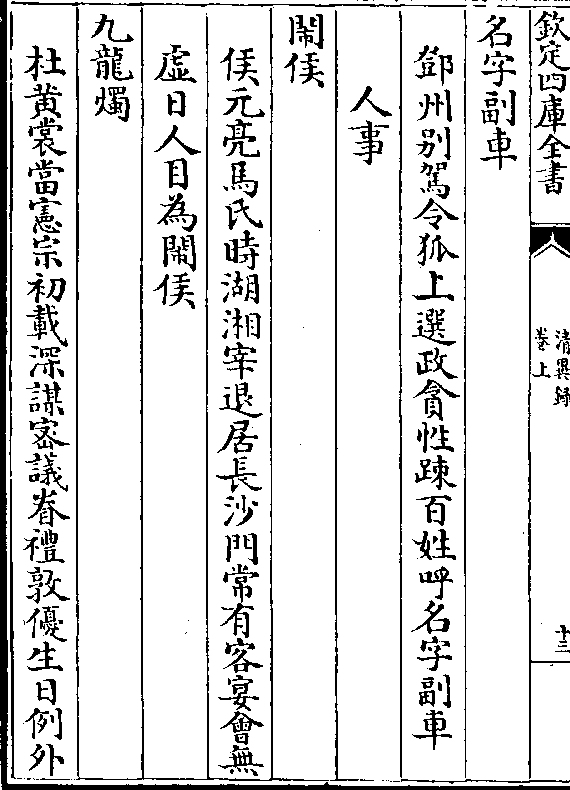 欽定四庫全書
清異錄
卷上
十三
名字副車
鄧州别駕令狐上選政貪性踈百姓呼名字副車
人事
閙侯
侯元亮馬氏時湖湘宰退居長沙門常有客宴會無
虚日人目為閙侯
九龍燭
杜黄裳當憲宗初載深謀密議眷禮敦優生日例外